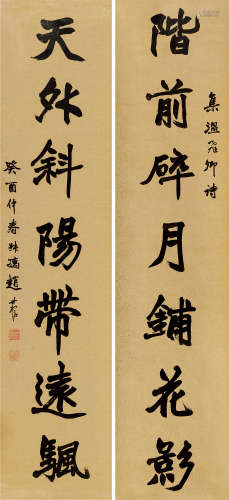 階前碎月鋪花影
集溫飛卿詩
天外斜陽帶遠颿
癸酉仲春 趙世駿